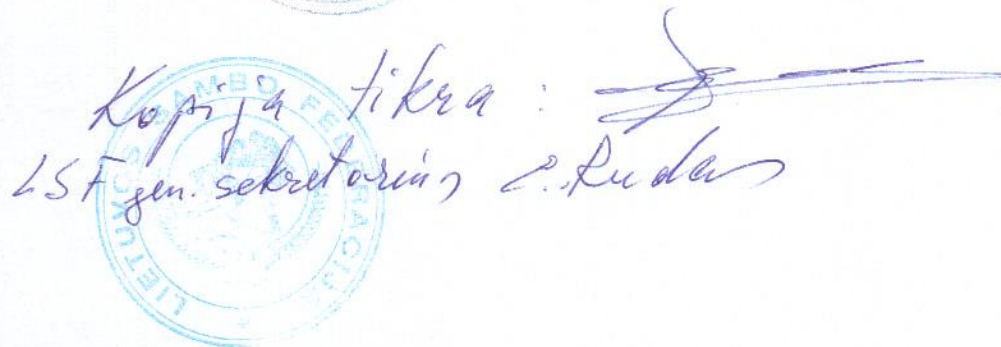 Kopija tikra :
LSF gen. sekretorius E. Rudas
LIETUVOS SAMBO FEDERACIJA